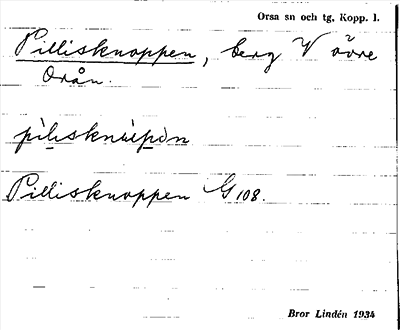 Orsa sn och tg, Kopp. l.
Pilliskn​oppen, berg V övre
Orån.
Pillisknoppen G 108.
Bror Lindén 1934